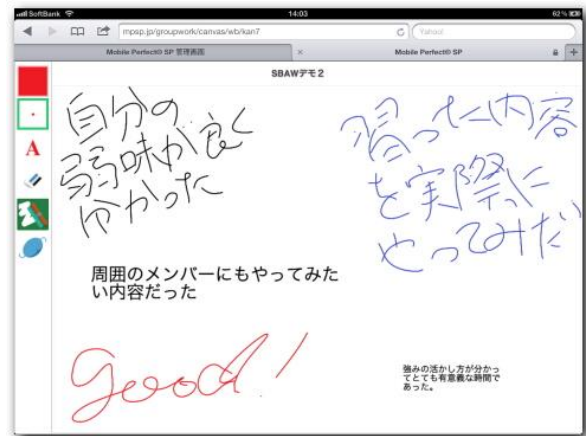 SoftBank
14:03
62%
mpsp.jp/groupwork/canvas/wb/kan7
Yahoo!
Mobile Perfect® SP 管理画面
Mobile Perfect® SP
SBAWデモ2
A
自分の
弱味が良く
分かった
習った内容
を実際に
やってみたい
周囲のメンバーにもやってみた
い内容だった
Good!
強みの活かし方が分かっ
てとても有意義な時間で
あった。